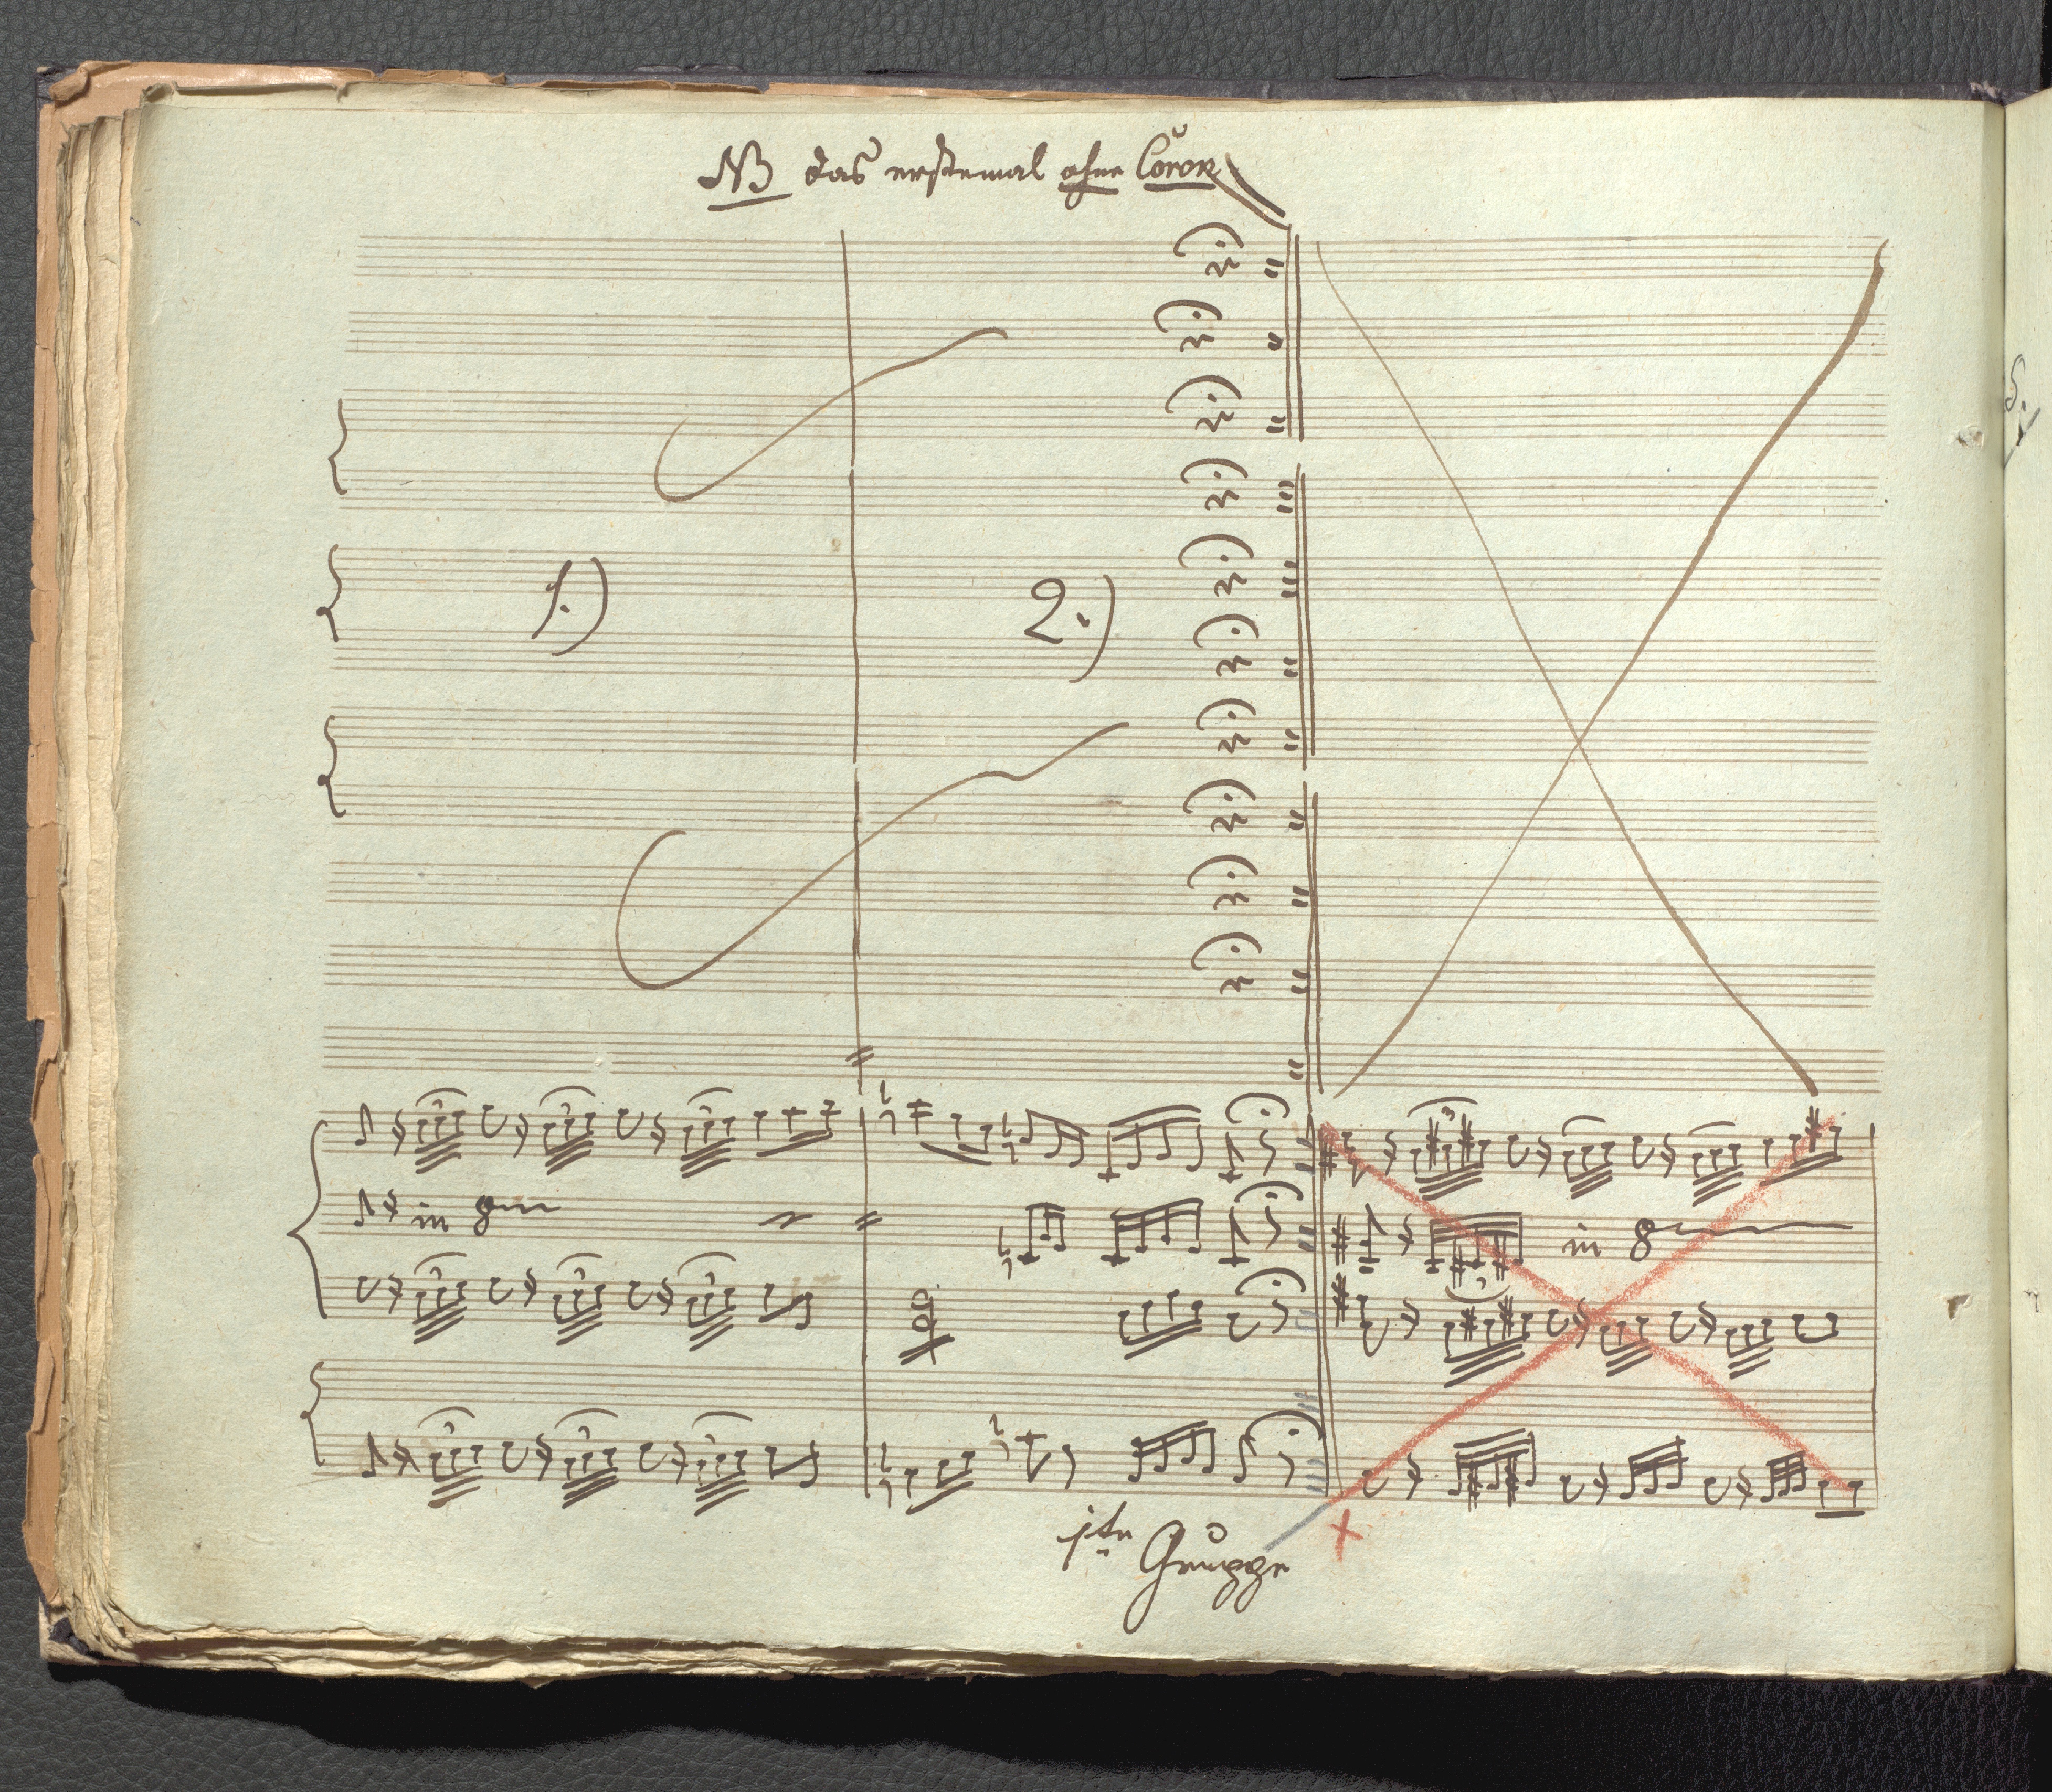 NB das erstemal ohne Coron
1.) 2.)
in 8
in 8
1te Gruppe